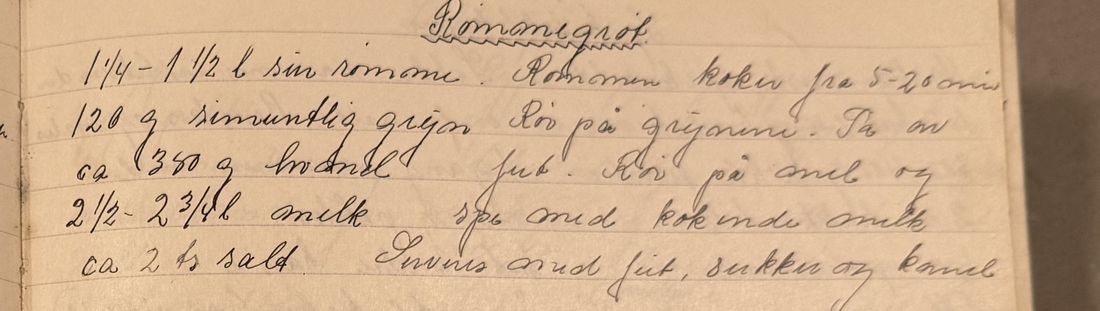 Rømmegrøt
1 1/4 - 1 1/2 l sur rømme. Rømmen koker fra 5-20 min,
120 g semuntlig grijon Rør på grijonene. Ta av
ca 380 g hvemel fett. Rør på mel og
2 1/2 - 2 3/4 l melk spe med kokende melk
ca 2 ts salt Serveres med fett, sukker og kanel